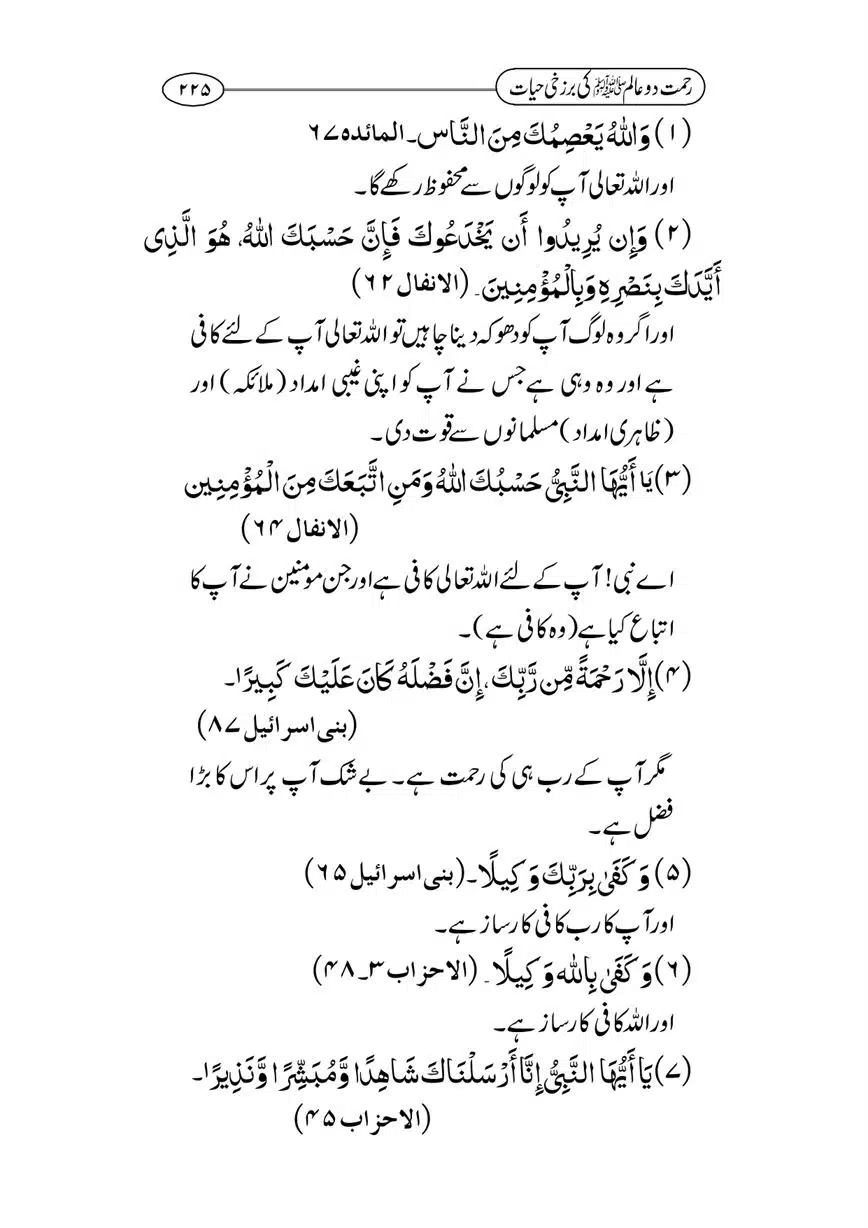 رحمت دو عالم ﷺ کی برزخی حیات ۲۲۵
(۱) وَاللهُ يَعْصِمُكَ مِنَ النَّاس۔ المائدہ ۶۷
اور اللہ تعالی آپ کو لوگوں سے محفوظ رکھے گا۔
(۲) وَإِن يُرِيدُوا أَن يَخْدَعُوكَ فَإِنَّ حَسْبَكَ اللهُ، هُوَ الَّذِى
أَيَّدَكَ بِنَصْرِهِ وَبِالْمُؤْمِنِينَ۔ (الانفال ۶۲)
اور اگر وہ لوگ آپ کو دھوکہ دینا چاہیں تو اللہ تعالی آپ کے لئے کافی
ہے اور وہ وہی ہے جس نے آپ کو اپنی غیبی امداد (ملائکہ) اور
(ظاہری امداد) مسلمانوں سے قوت دی۔
(۳) يَا أَيُّهَا النَّبِيُّ حَسْبُكَ اللهُ وَمَنِ اتَّبَعَكَ مِنَ الْمُؤْمِنِين
(الانفال ۶۴)
اے نبی! آپ کے لئے اللہ تعالی کافی ہے اور جن مومنین نے آپ کا
اتباع کیا ہے (وہ کافی ہے)۔
(۴) إِلَّا رَحْمَةً مِّن رَّبِّكَ، إِنَّ فَضْلَهُ كَانَ عَلَيْكَ كَبِيرًا۔
(بنی اسرائیل ۸۷)
مگر آپ کے رب ہی کی رحمت ہے۔ بے شک آپ پر اس کا بڑا
فضل ہے۔
(۵) وَكَفَىٰ بِرَبِّكَ وَكِيلًا۔ (بنی اسرائیل ۶۵)
اور آپ کا رب کافی کارساز ہے۔
(۶) وَكَفَىٰ بِاللهِ وَكِيلًا۔ (الاحزاب ۳۔۴۸)
اور اللہ کافی کارساز ہے۔
(۷) يَا أَيُّهَا النَّبِيُّ إِنَّا أَرْسَلْنَاكَ شَاهِدًا وَّمُبَشِّرًا وَّنَذِيرًا۔
(الاحزاب ۴۵)